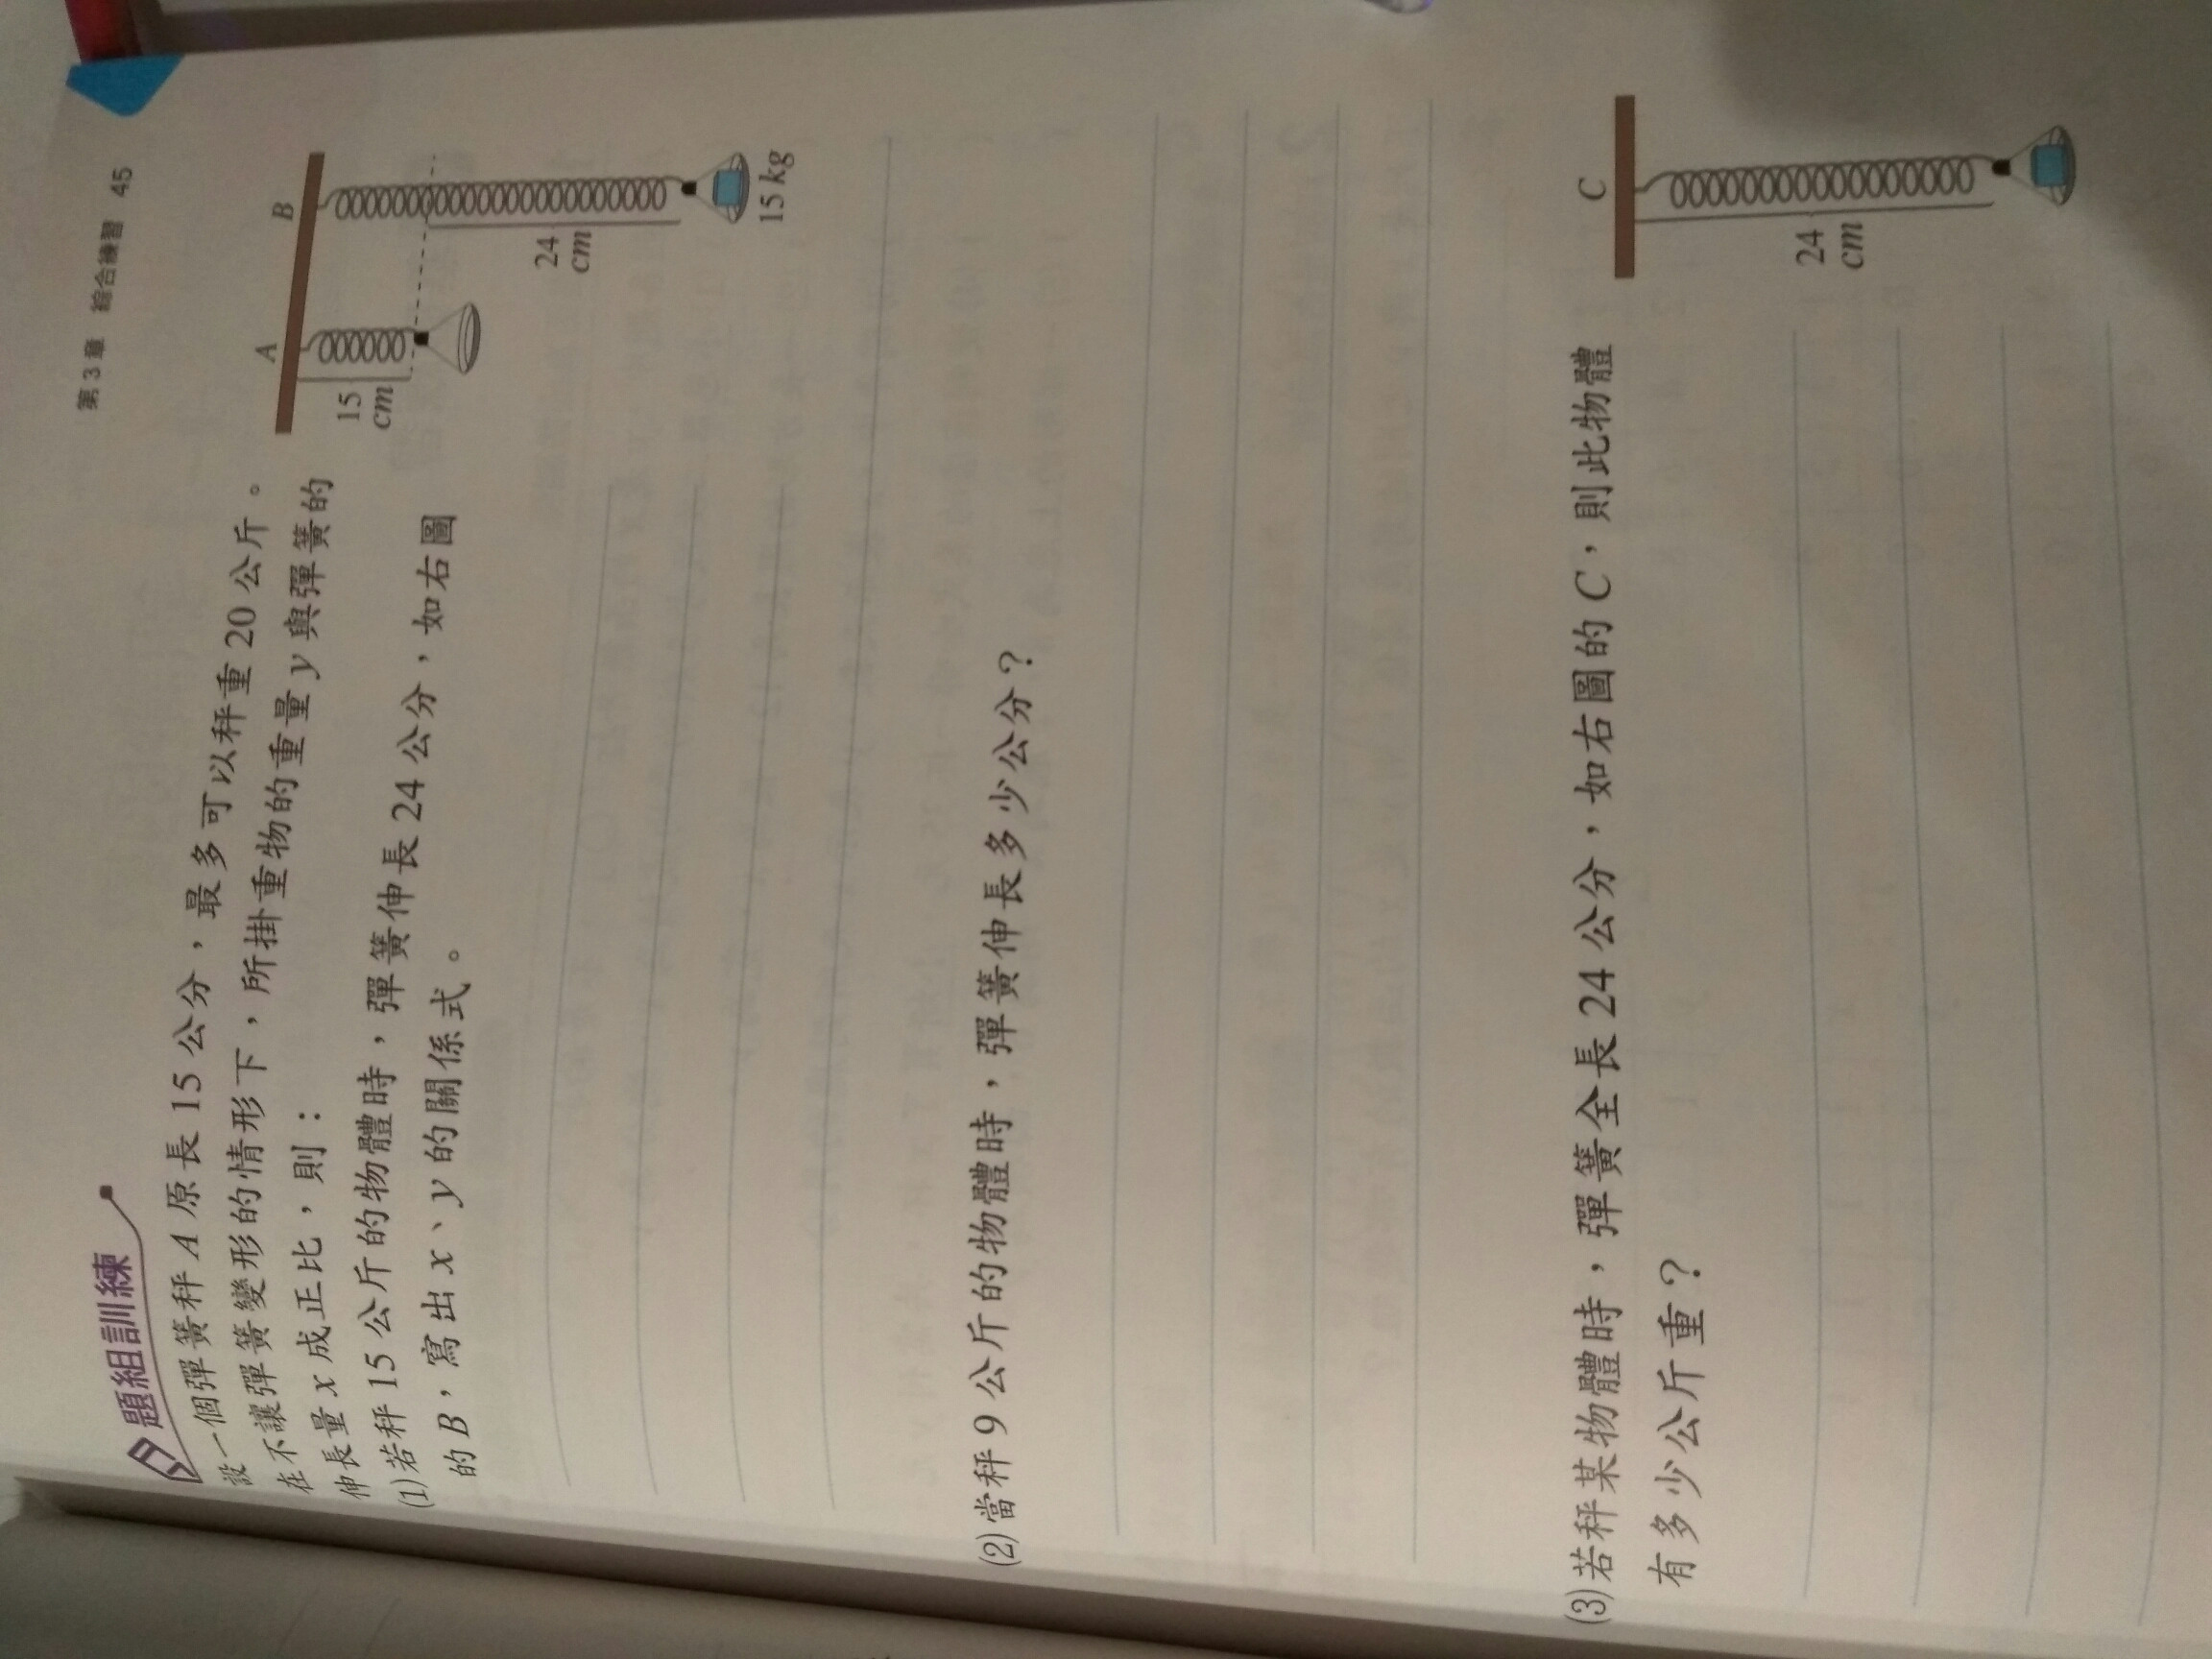 第3章 綜合練習 45
題組訓練
設一個彈簧秤 A 原長 15 公分，最多可以秤重 20 公斤。
在不讓彈簧變形的情形下，所掛重物的重量 y 與彈簧的
伸長量 x 成正比，則：
(1)若秤 15 公斤的物體時，彈簧伸長 24 公分，如右圖
的 B，寫出 x、y 的關係式。
A
B
15
cm
24
cm
15 kg
(2)當秤 9 公斤的物體時，彈簧伸長多少公分？
(3)若秤某物體時，彈簧全長 24 公分，如右圖的 C，則此物體
有多少公斤重？
C
24
cm